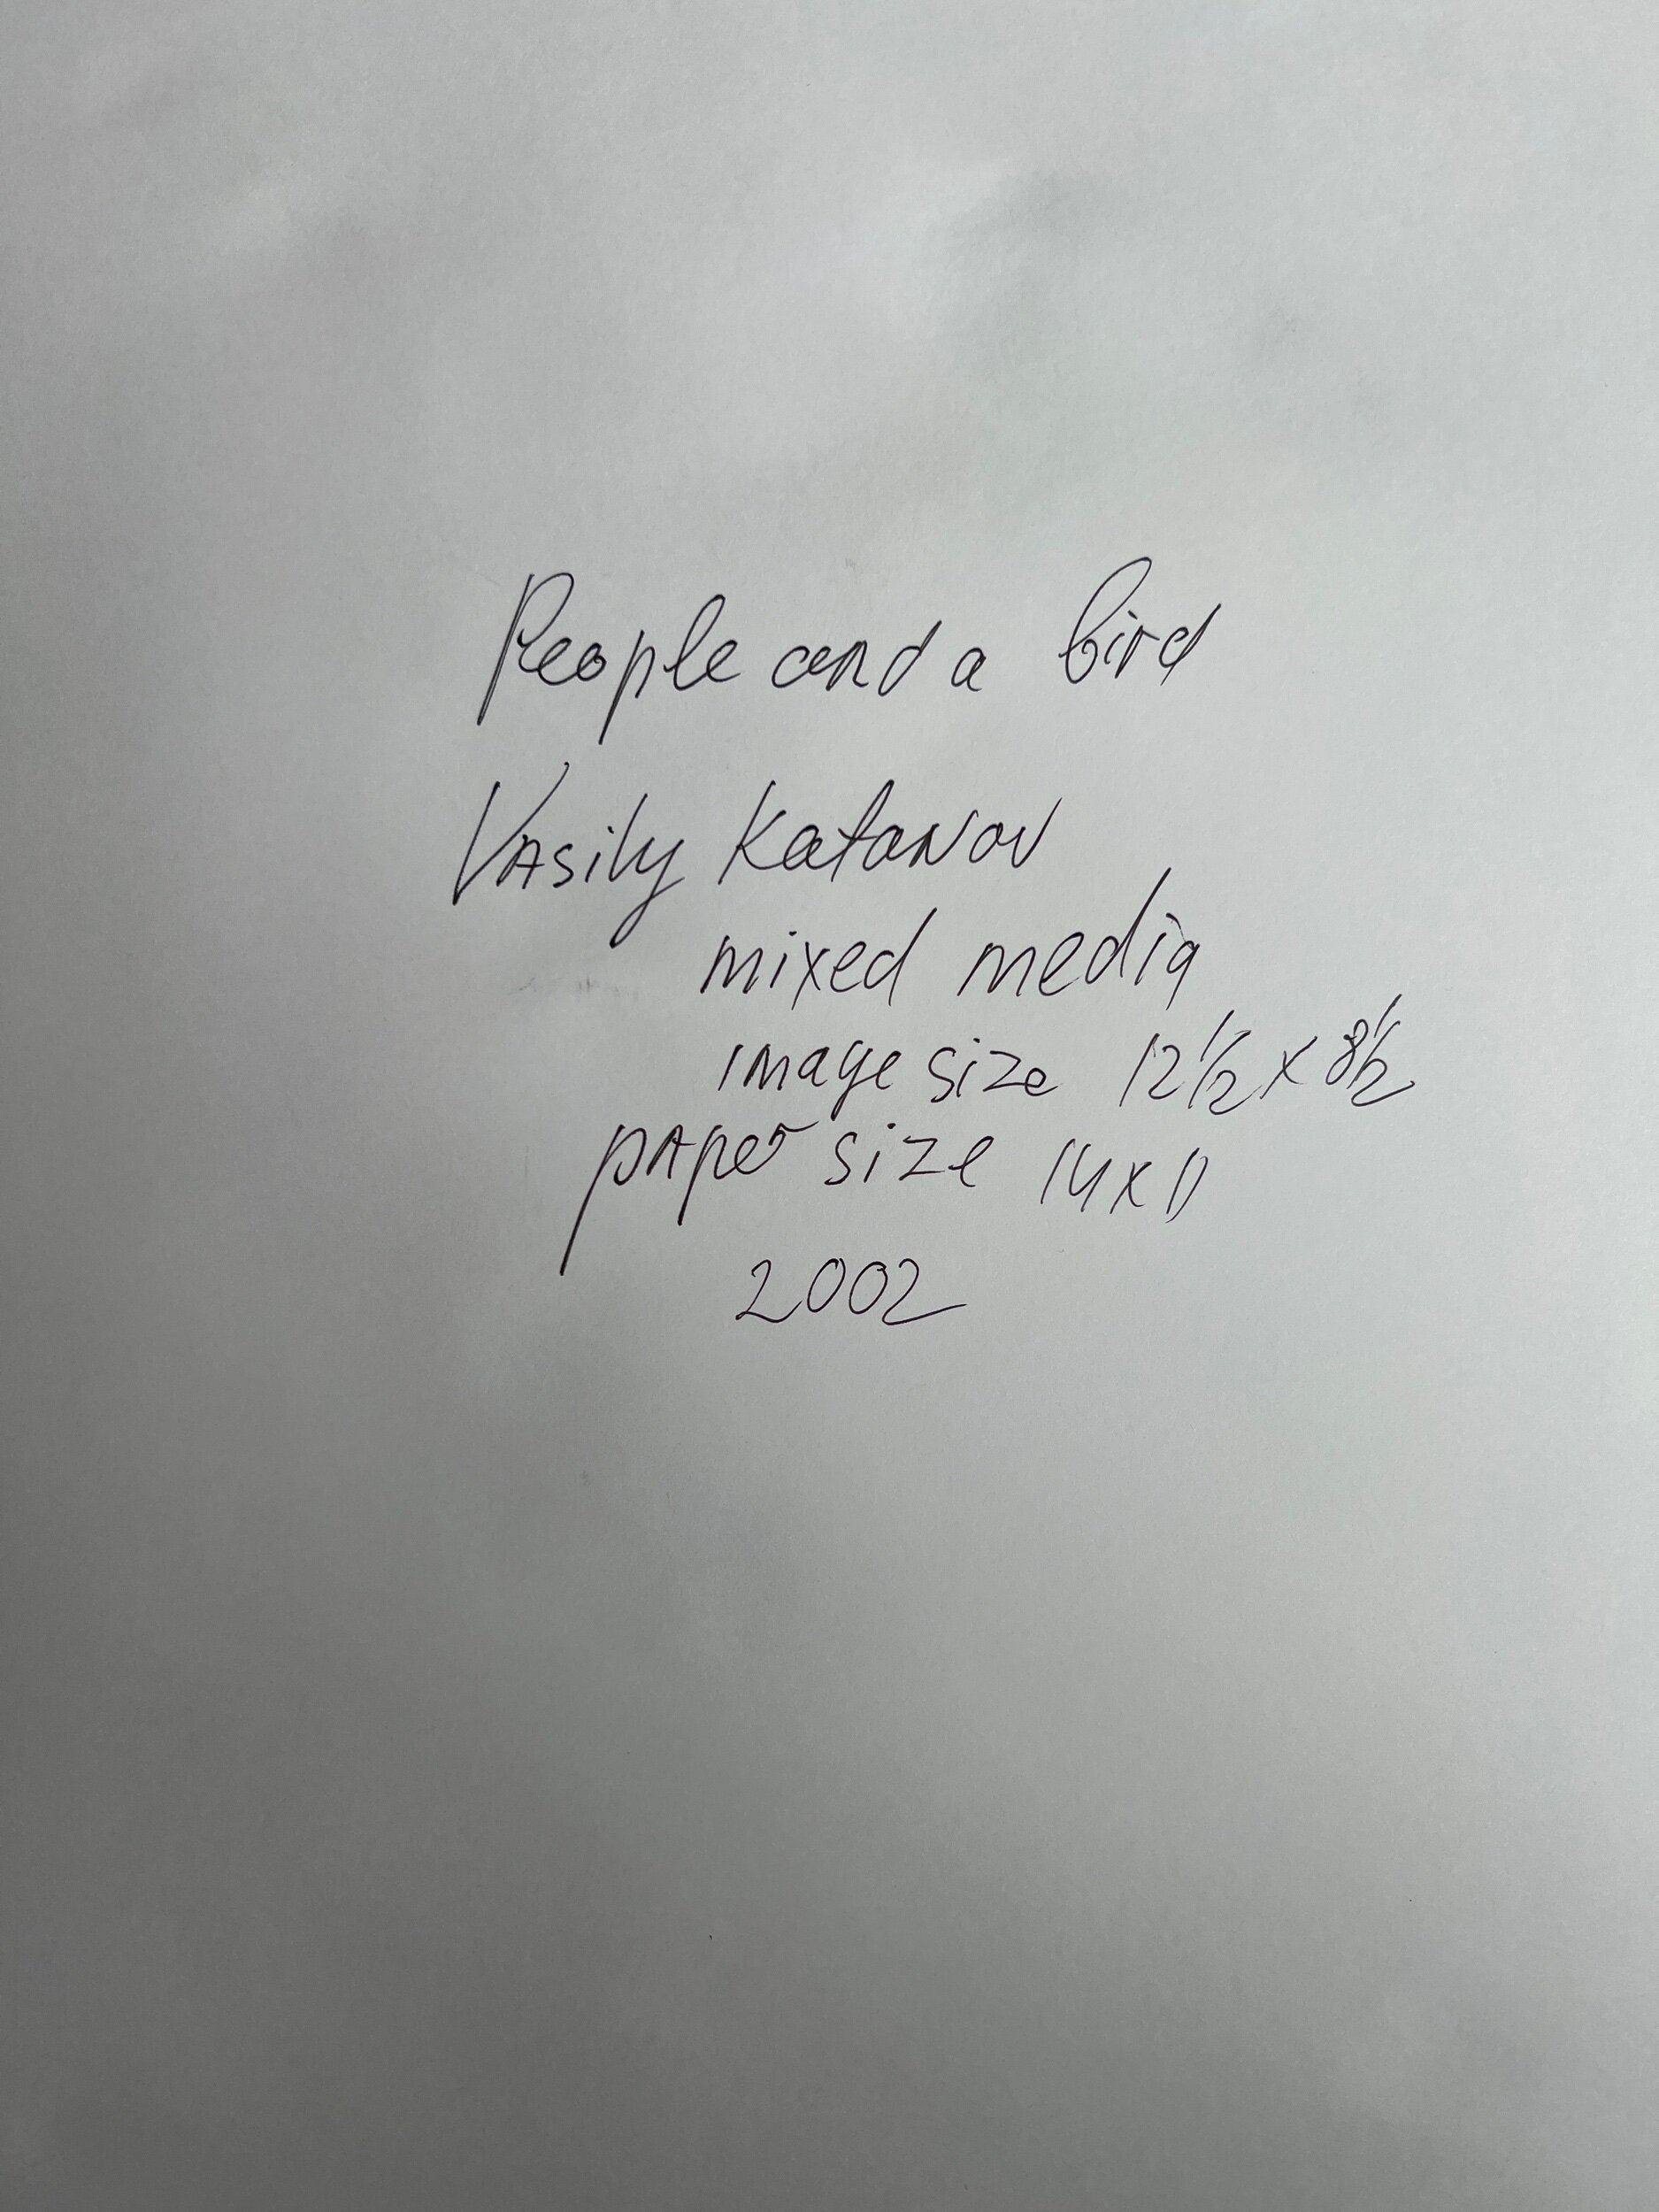 People and a bird
Vasily Katanov
mixed media
image size 12 1/2 x 8 1/2
paper size 14 x 11
2002